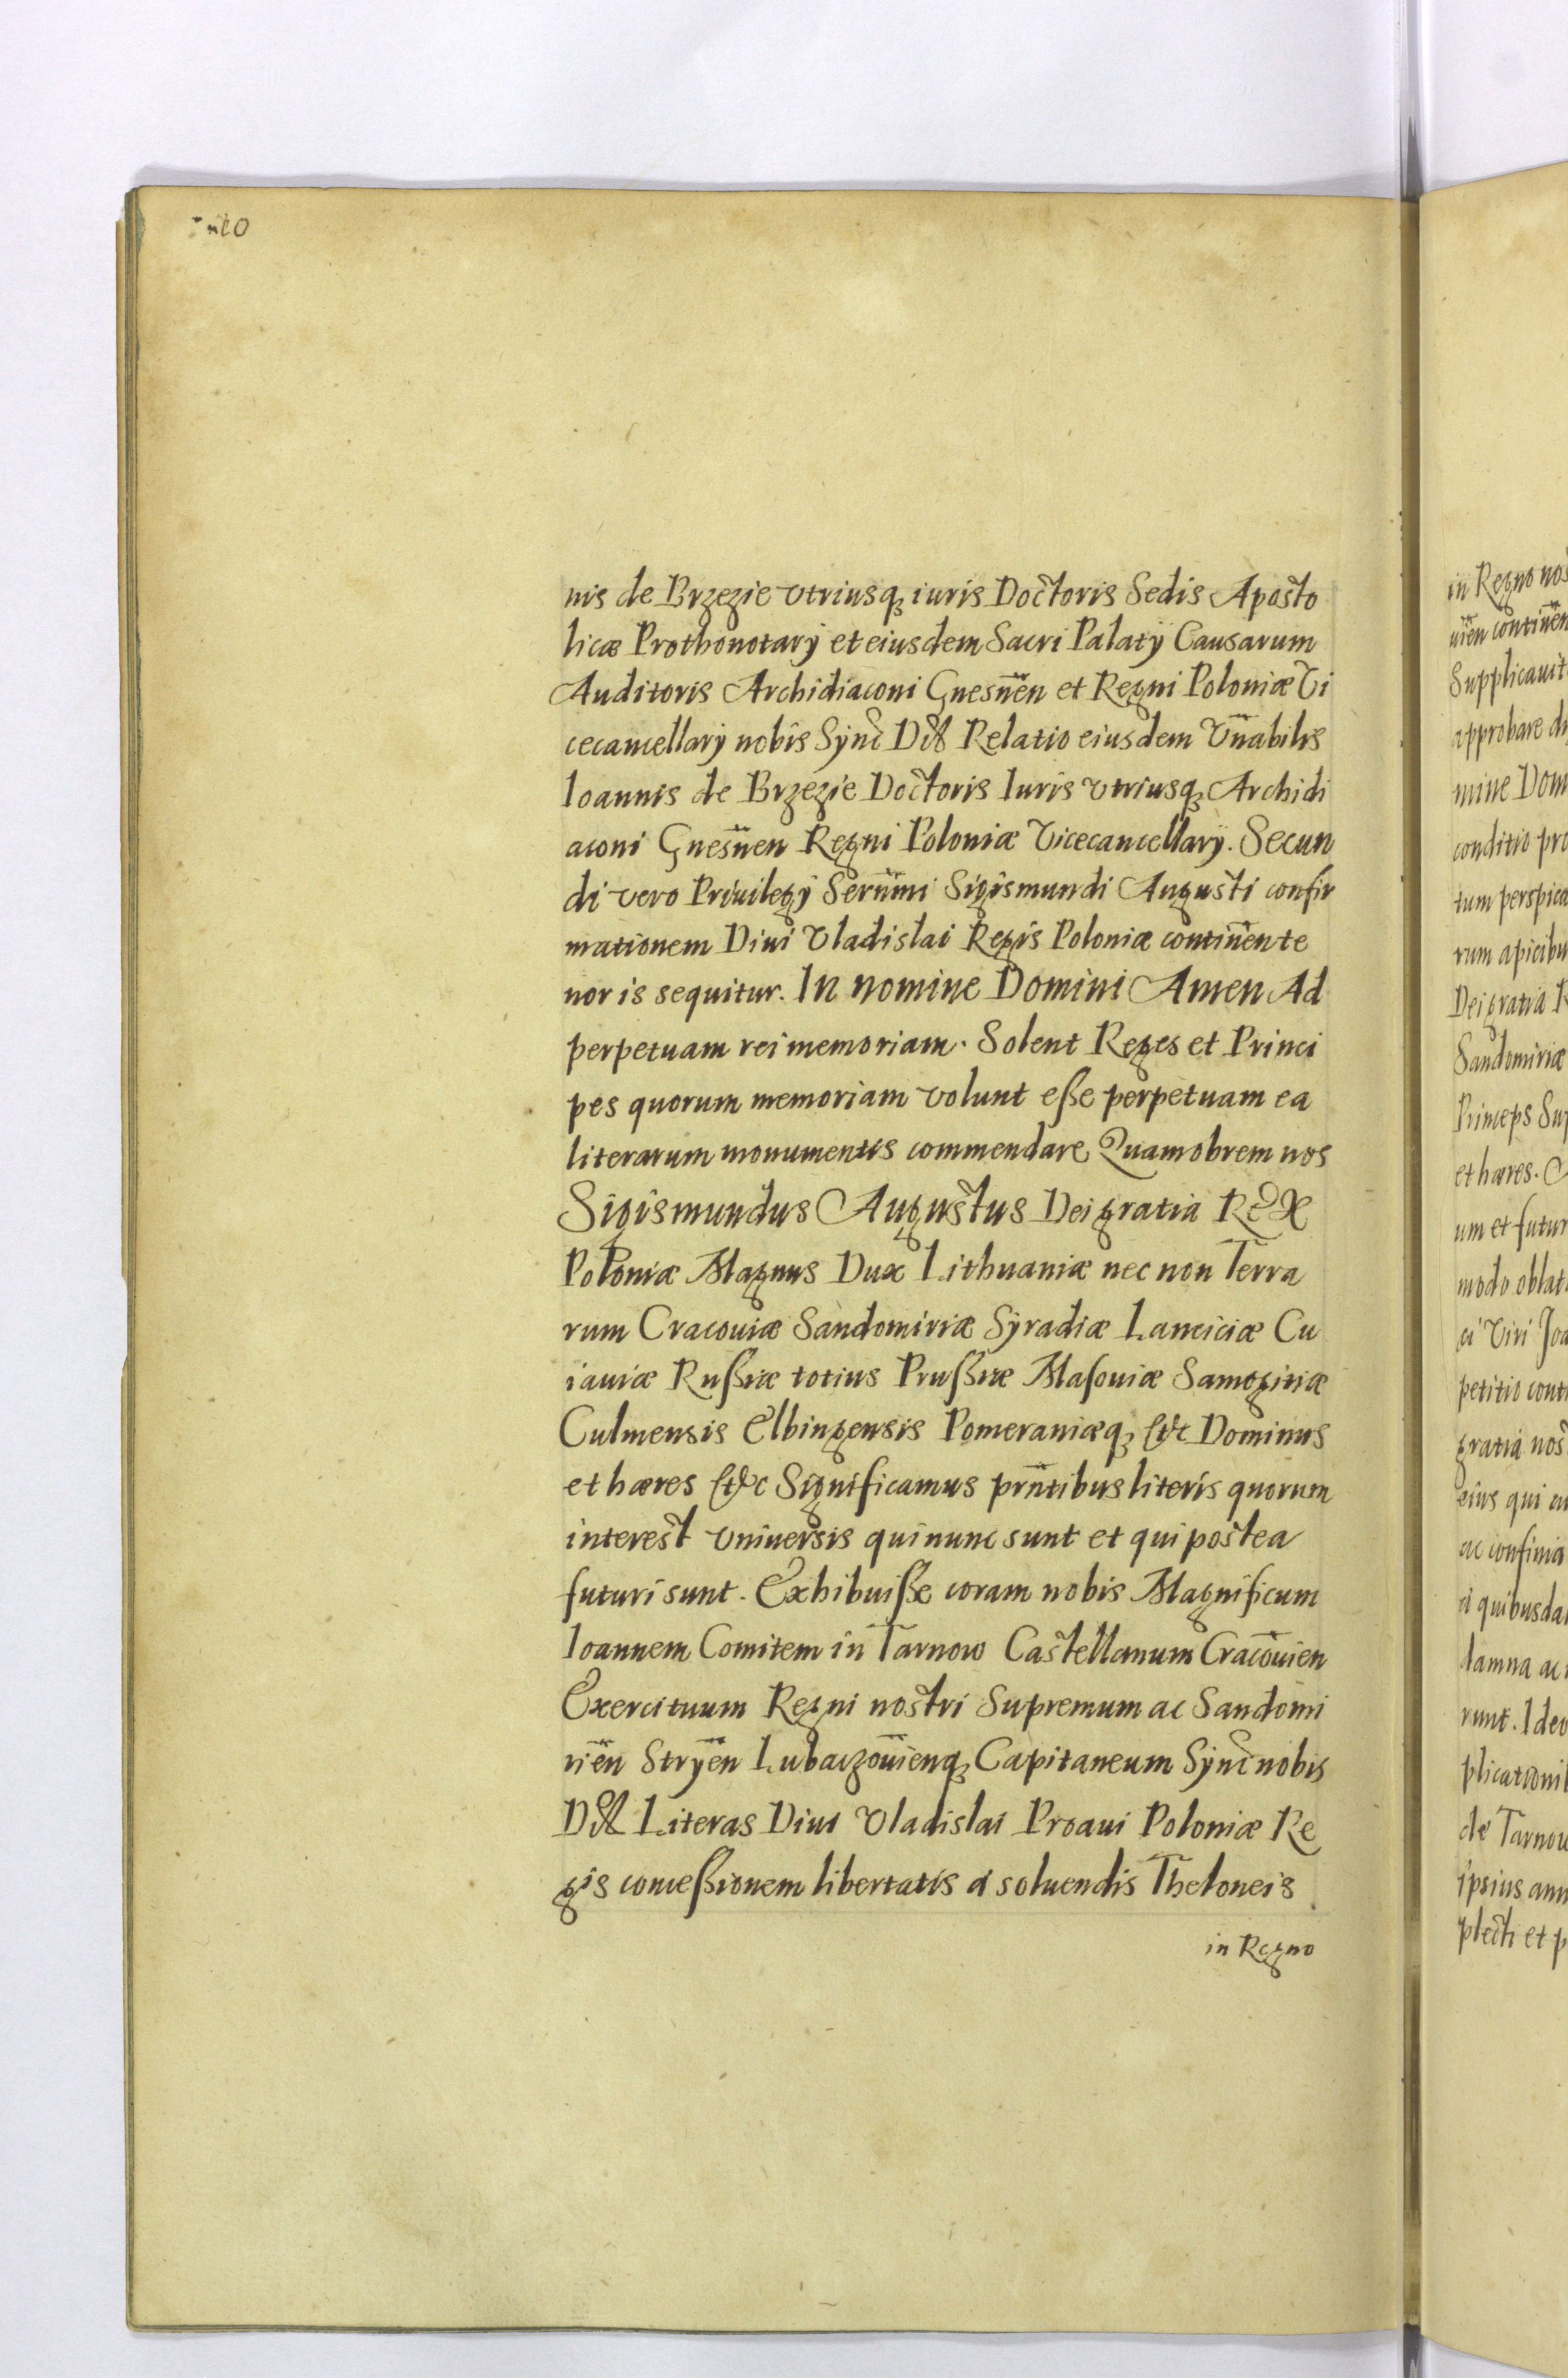 nis de Brzezie vtriusq₃ iuris Doctoris Sedis Aposto
licæ Prothonotarÿ et eiusdem Sacri Palatÿ Causarum
Auditoris Archidiaconi Gnesn̄en et Regni Poloniæ Vi
cecancellarÿ nobis Sÿnc̄ Relatio eiusdem Vn̄abilis
Ioannis de Brzezie Doctoris Iuris vtriusq₃ Archidi
aconi Gnesn̄en Regni Poloniæ Vicecancellarÿ. Secun
di vero Priuilegÿ Sern̄mi Sigismundi Augusti confir
mationem Diui Vladislai Regis Poloniæ contin̄en te
nor is sequitur. In nomine Domini Amen Ad
perpetuam rei memoriam. Solent Reges et Princi
pes quorum memoriam volunt eſse perpetuam ea
literarum monumentis commendare Quamobrem nos
Sigismundus Augustus Dei gratia Rex
Poloniæ Magnus Dux Lithuaniæ nec non Terra
rum Cracouiæ Sandomiriæ Sÿradiæ Lanciciæ Cu
iauiæ Ruſsiæ totius Pruſsiæ Maſouiæ Samogitiæ
Culmensis Elbingensis Pomeraniæq₃ &c Dominus
et hæres &c Significamus prn̄tibus literis quorum
interest vniuersis qui nunc sunt et qui postea
futuri sunt. Exhibuiſse coram nobis Magnificum
Ioannem Comitem in Tarnow Castellanum Cracou̅ien
Exercituum Regni nostri Supremum ac Sandomi
rien̄ Strÿen̄ Lubaczou̅ienq₃ Capitaneum Sÿnc̄ nobis
Literas Diui Vladislai Proaui Poloniæ Re
gis conceſsionem libertatis a soluendis Theloneis
in Regno
in Regno nos
Supplicauit
approbare di
mine Dom
conditio pro
tum perspica
rum apicibu
Dei gratia R
Sandomiriæ
Princeps Sup
et hæres.
um et futur
modo oblat
ci Viri Joa
petitio cont
gratia nos
eius qui
ac confinia
quibusda
damna ac
runt. Ideo
plicationi
de Tarnow
ipsius ann
plecti et p